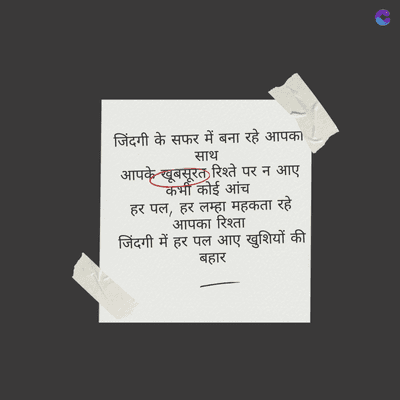 जिंदगी के सफर में बना रहे आपका
साथ
आपके खूबसूरत रिश्ते पर न आए
कभी कोई आंच
हर पल, हर लम्हा महकता रहे
आपका रिश्ता
जिंदगी में हर पल आए खुशियों की
बहार